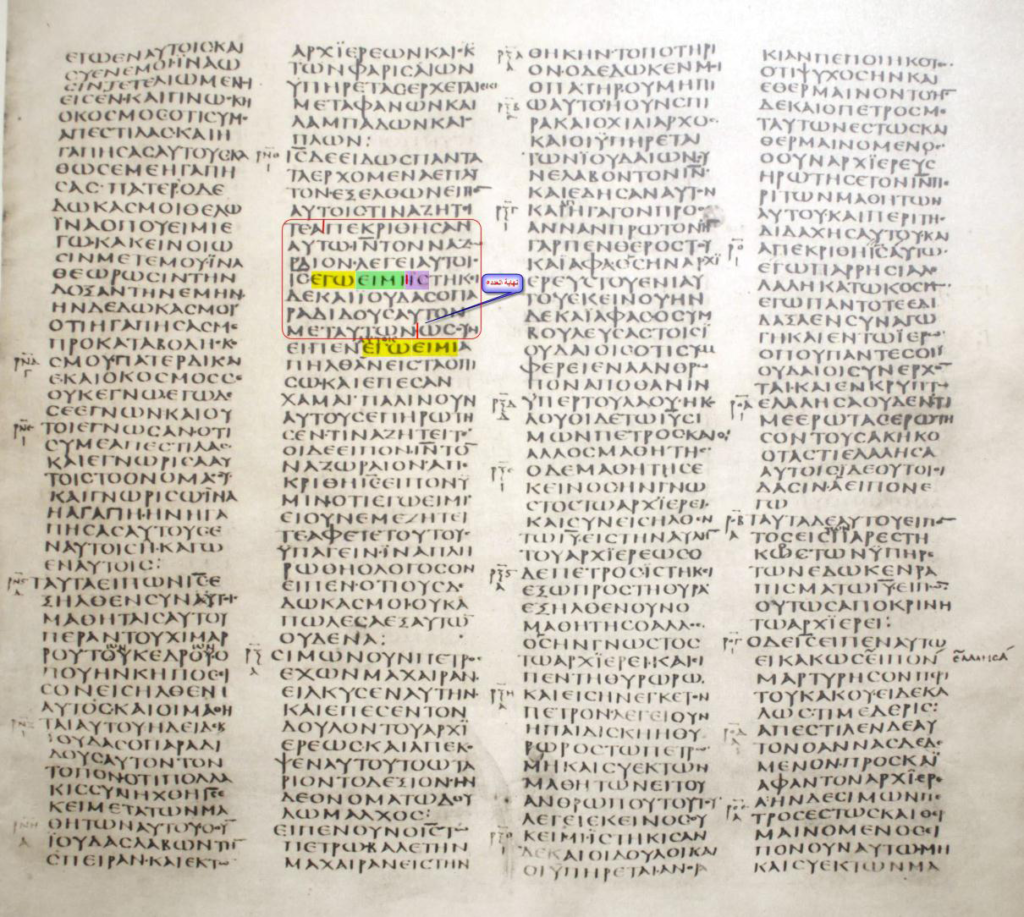 ΕΓΩΕΝΑΥΤΟΙϹΚΑΙ
ϹΥΕΝΕΜΟΙΪΝΑΩ
ϹΙΝΤΕΤΕΛΙΩΜΕΝΗ
ΕΙϹΕΝ·ΚΑΙΓΙΝΩϹΚΗ
ΟΚΟϹΜΟϹΟΤΙϹΥΜΕ
ΑΠΕϹΤΙΛΑϹΚΑΙΗ
ΓΑΠΗϹΑϹΑΥΤΟΥϹΚΑ
ΘΩϹΕΜΕΗΓΑΠΗ
ϹΑϹ·ΠΑΤΕΡΟΔΕ
ΔΩΚΑϹΜΟΙΘΕΛΩ
ΪΝΑΟΠΟΥΕΙΜΙΕ
ΓΩΚΑΚΕΙΝΟΙΩ
ϹΙΝΜΕΤΕΜΟΥΪΝΑ
ΘΕΩΡΩϹΙΝΤΗΝ
ΔΟΞΑΝΤΗΝΕΜΗΝ
ΗΝΔΕΔΩΚΑϹΜΟΙ
ΟΤΙΗΓΑΠΗϹΑϹΜΕ
ΠΡΟΚΑΤΑΒΟΛΗϹΚΟ
ϹΜΟΥΠΑΤΕΡΔΙΚΑΙ
ΕΚΑΙΟΚΟϹΜΟϹϹΕ
ΟΥΚΕΓΝΩΕΓΩΔΕ
ϹΕΕΓΝΩΝΚΑΙΟΥ
ΤΟΙΕΓΝΩϹΑΝΟΤΙ
ϹΥΜΕΑΠΕϹΤΙΛΑϹ
ΚΑΙΕΓΝΩΡΙϹΑΑΥ
ΤΟΙϹΤΟΟΝΟΜΑϹΟΥ
ΚΑΙΓΝΩΡΙϹΩΪΝΑ
ΗΑΓΑΠΗΗΝΗΓΑ
ΠΗϹΑϹΑΥΤΟΥϹΕ
ΝΑΥΤΟΙϹΗΚΑΓΩ
ΕΝΑΥΤΟΙϹ:
ΤΑΥΤΑΕΙΠΩΝΙϹΕ
ΞΗΛΘΕΝϹΥΝΑΥΤΟΙ
ΜΑΘΗΤΑΙϹΑΥΤΟΥ
ΠΕΡΑΝΤΟΥΧΙΜΑΡ
ΡΟΥΤΟΥΚΕΔΡΟΥΟ
ΠΟΥΗΝΚΗΠΟϹΕΙ
ϹΟΝΕΙϹΗΛΘΕΝΙ
ΑΥΤΟϹΚΑΙΟΙΜΑΘΗ
ΤΑΙΑΥΤΟΥΗΔΕΙΔΕΚ
ΪΟΥΔΑϹΟΠΑΡΑΔΙ
ΔΟΥϹΑΥΤΟΝΤΟΝ
ΤΟΠΟΝΟΤΙΠΟΛΛΑ
ΚΙϹϹΥΝΗΧΘΗΙϹ
ΕΚΕΙΜΕΤΑΤΩΝΜΑ
ΘΗΤΩΝΑΥΤΟΥΟΥ
ΪΟΥΔΑϹΛΑΒΩΝΤΗ
ϹΠΕΙΡΑΝ·ΚΑΙΕΚΤΩ
ΑΡΧΪΕΡΕΩΝΚΑΙ·Κ
ΤΩΝΦΑΡΙϹΑΙΩΝ
ΥΠΗΡΕΤΑϹΕΡΧΕΤΑΙΕΚΕΙ
ΜΕΤΑΦΑΝΩΝΚΑΙ
ΛΑΜΠΑΔΩΝΚΑΙΟ
ΠΛΩΝ:
ΙϹΔΕΕΙΔΩϹΠΑΝΤΑ
ΤΑΕΡΧΟΜΕΝΑΕΠΑΥ
ΤΟΝΕΞΕΛΘΩΝΕΙΠΕ
ΑΥΤΟΙϹΤΙΝΑΖΗΤΕΙ
ΤΕΑΠΕΚΡΙΘΗϹΑΝ
ΑΥΤΩΙΝΤΟΝΝΑΖΩ
ΡΑΙΟΝ·ΛΕΓΕΙΑΥΤΟΙϹ
ΙϹΕΓΩΕΙΜΙΙϹΤΗΚΙ
ΔΕΚΑΙΪΟΥΔΑϹΟΠΑ
ΡΑΔΙΔΟΥϹΑΥΤΟΝ
ΜΕΤΑΥΤΩΝΩϹΟΥΝ
نهاية العدد
ΕΙΠΕΝΕΓΩΕΙΜΙΑ
ΠΗΛΘΑΝΕΙϹΤΑΟΠΙ
ϹΩΚΑΙΕΠΕϹΑΝ
ΧΑΜΑΙΠΑΛΙΝΟΥΝ
ΑΥΤΟΥϹΕΠΗΡΩΤΗ
ϹΕΝΤΙΝΑΖΗΤΕΙΤΕ
ΟΙΔΕΕΙΠΟΝΙΝΤΟ
ΝΑΖΩΡΑΙΟΝΑΠΕ
ΚΡΙΘΗΙϹΕΙΠΟΝΥ
ΜΙΝΟΤΙΕΓΩΕΙΜΙ
ΕΙΟΥΝΕΜΕΖΗΤΕΙ
ΤΕΑΦΕΤΕΤΟΥΤΟΥϹ
ΥΠΑΓΕΙΝ·ΪΝΑΠΛΗ
ΡΩΘΗΟΛΟΓΟϹΟΝ
ΕΙΠΕΝ·ΟΤΙΟΥϹΔΕ
ΔΩΚΑϹΜΟΙΟΥΚΑ
ΠΩΛΕϹΑΕΞΑΥΤΩ
ΟΥΔΕΝΑ:
ϹΙΜΩΝΟΥΝΠΕΤΡΟϹ
ΕΧΩΝΜΑΧΑΙΡΑΝ
ΕΙΛΚΥϹΕΝΑΥΤΗΝ
ΚΑΙΕΠΕϹΕΝΤΟΝ
ΔΟΥΛΟΝΤΟΥΑΡΧΪ
ΕΡΕΩϹΚΑΙΑΠΕΚΟ
ΨΕΝΑΥΤΟΥΤΟΩΤΑ
ΡΙΟΝΤΟΔΕΞΙΟΝ·ΗΝ
ΔΕΟΝΟΜΑΤΩΔΟΥ
ΛΩΜΑΛΧΟϹ:
ΕΙΠΕΝΟΥΝΟΙϹΤΩ
ΠΕΤΡΩΒΑΛΕΤΗΝ
ΜΑΧΑΙΡΑΝΕΙϹΤΗΝ
ΘΗΚΗΝ·ΤΟΠΟΤΗΡΙ
ΟΝΟΔΕΔΩΚΕΝΜΟΙ
ΟΠΑΤΗΡΟΥΜΗΠΙ
ΩΑΥΤΟΗΟΥΝϹΠΙ
ΡΑΚΑΙΟΧΙΛΙΑΡΧΟϹ
ΚΑΙΟΙΫΠΗΡΕΤΑΙ
ΤΩΝΪΟΥΔΑΙΩΝϹΥ
ΝΕΛΑΒΟΝΤΟΝΙΝ
ΚΑΙΕΔΗϹΑΝΑΥΤΟΝ
ΚΑΙΗΓΑΓΟΝΠΡΟϹ
ΑΝΝΑΝΠΡΩΤΟΝΗΝ
ΓΑΡΠΕΝΘΕΡΟϹΤΟΥ
ΚΑΪΑΦΑΟϹΗΝΑΡΧΙ
ΕΡΕΥϹΤΟΥΕΝΙΑΥ
ΤΟΥΕΚΕΙΝΟΥΗΝ
ΔΕΚΑΪΑΦΑϹΟϹΥΜ
ΒΟΥΛΕΥϹΑϹΤΟΙϹΪ
ΟΥΔΑΙΟΙϹΟΤΙϹΥΜ
ΦΕΡΕΙΕΝΑΑΝΘΡΩ
ΠΟΝΑΠΟΘΑΝΙΝ
ΥΠΕΡΤΟΥΛΑΟΥΗΚΟ
ΛΟΥΘΙΔΕΤΩΙΥϹΙ
ΜΩΝΠΕΤΡΟϹΚΑΙΟ
ΑΛΛΟϹΜΑΘΗΤΗϹ
ΟΔΕΜΑΘΗΤΗϹΕ
ΚΕΙΝΟϹΗΝΓΝΩ
ϹΤΟϹΤΩΑΡΧΪΕΡΕΙ
ΚΑΙϹΥΝΕΙϹΗΛΘΕΝ
ΤΩΙΥΕΙϹΤΗΝΑΥΛΗ
ΤΟΥΑΡΧΪΕΡΕΩϹΟ
ΔΕΠΕΤΡΟϹΪϹΤΗΚΕΙ
ΕΞΩΠΡΟϹΤΗΘΥΡΑ
ΕΞΗΛΘΕΝΟΥΝΟ
ΜΑΘΗΤΗϹΟΑΛΛΟϹ
ΟϹΗΝΓΝΩϹΤΟϹ
ΤΩΑΡΧΪΕΡΕΙ·ΚΑΙΕΙ
ΠΕΝΤΗΘΥΡΩΡΩ
ΚΑΙΕΙϹΗΝΕΓΚΕΤΟΝ
ΠΕΤΡΟΝ·ΛΕΓΕΙΟΥΝ
ΗΠΑΙΔΙϹΚΗΗΘΥ
ΡΩΡΟϹΤΩΠΕΤΡΩ
ΜΗΚΑΙϹΥΕΚΤΩΝ
ΜΑΘΗΤΩΝΕΙΤΟΥ
ΑΝΘΡΩΠΟΥΤΟΥΤΟΥ
ΛΕΓΕΙΕΚΕΙΝΟϹΟΥ
ΚΕΙΜΙΪϹΤΗΚΙϹΑΝ
ΔΕΚΑΙΟΙΔΟΥΛΟΙΚΑΙ
ΟΙΫΠΗΡΕΤΑΙΑΝΘΡΑ
ΚΙΑΝΠΕΠΟΙΗΚΟΤΕϹ
ΟΤΙΨΥΧΟϹΗΝΚΑΙ
ΕΘΕΡΜΑΙΝΟΝΤΟΗΝ
ΔΕΚΑΙΟΠΕΤΡΟϹΜΕ
ΤΑΥΤΩΝΕϹΤΩϹΚΑΙ
ΘΕΡΜΑΙΝΟΜΕΝΟϹ
ΟΟΥΝΑΡΧΪΕΡΕΥϹ
ΗΡΩΤΗϹΕΤΟΝΙΝΠΕ
ΡΙΤΩΝΜΑΘΗΤΩΝ
ΑΥΤΟΥΚΑΙΠΕΡΙΤΗϹ
ΔΙΔΑΧΗϹΑΥΤΟΥΚΑΙ
ΑΠΕΚΡΙΘΗΙϹΕΓΩ
ΛΕΛΑΛΗΚΑΤΩΚΟϹΜΩ
ΕΓΩΠΑΝΤΟΤΕΕΔΙ
ΔΑΞΑΕΝϹΥΝΑΓΩ
ΓΗΚΑΙΕΝΤΩΪΕΡΩ
ΟΠΟΥΠΑΝΤΕϹΟΙΪ
ΟΥΔΑΙΟΙϹΥΝΕΡΧΟ
ΤΑΙ·ΚΑΙΕΝΚΡΥΠΤΩ
ΕΛΑΛΗϹΑΟΥΔΕΝΤΙ
ΜΕΕΡΩΤΑϹΕΡΩΤΗ
ϹΟΝΤΟΥϹΑΚΗΚΟ
ΟΤΑϹΤΙΕΛΑΛΗϹΑ
ΑΥΤΟΙϹΪΔΕΟΥΤΟΙΟΙ
ΔΑϹΙΝ·ΑΕΙΠΟΝΕ
ΓΩ
ΤΑΥΤΑΔΕΑΥΤΟΥΕΙΠΟ
ΤΟϹΕΙϹΠΑΡΕϹΤΗ
ΚΩϹΤΩΝΫΠΗΡΕ
ΤΩΝΕΔΩΚΕΝΡΑ
ΠΙϹΜΑΤΩΙΥΕΙΠΩ
ΟΥΤΩϹΑΠΟΚΡΙΝΗ
ΤΩΑΡΧΙΕΡΕΙ:
ΟΔΕΙϹΕΙΠΕΝΑΥΤΩ
ΕΙΚΑΚΩϹΕΙΠΟΝ ἐλάλησα
ΜΑΡΤΥΡΗϹΟΝΠΕΡΙ
ΤΟΥΚΑΚΟΥΕΙΔΕΚΑ
ΛΩϹ·ΤΙΜΕΔΕΡΙϹ:
ΑΠΕϹΤΙΛΕΝΔΕΑΥ
ΤΟΝΟΑΝΝΑϹΔΕΔΕ
ΜΕΝΟΝ·ΠΡΟϹΚΑΪ
ΑΦΑΝΤΟΝΑΡΧΪΕΡΕ
ΑΗΝΔΕϹΙΜΩΝΠΕ
ΤΡΟϹΕϹΤΩϹΚΑΙΘΕΡ
ΜΑΙΝΟΜΕΝΟϹΕΙ
ΠΟΝΟΥΝΑΥΤΩΜΗ
ΚΑΙϹΥΕΚΤΩΝΜΑ